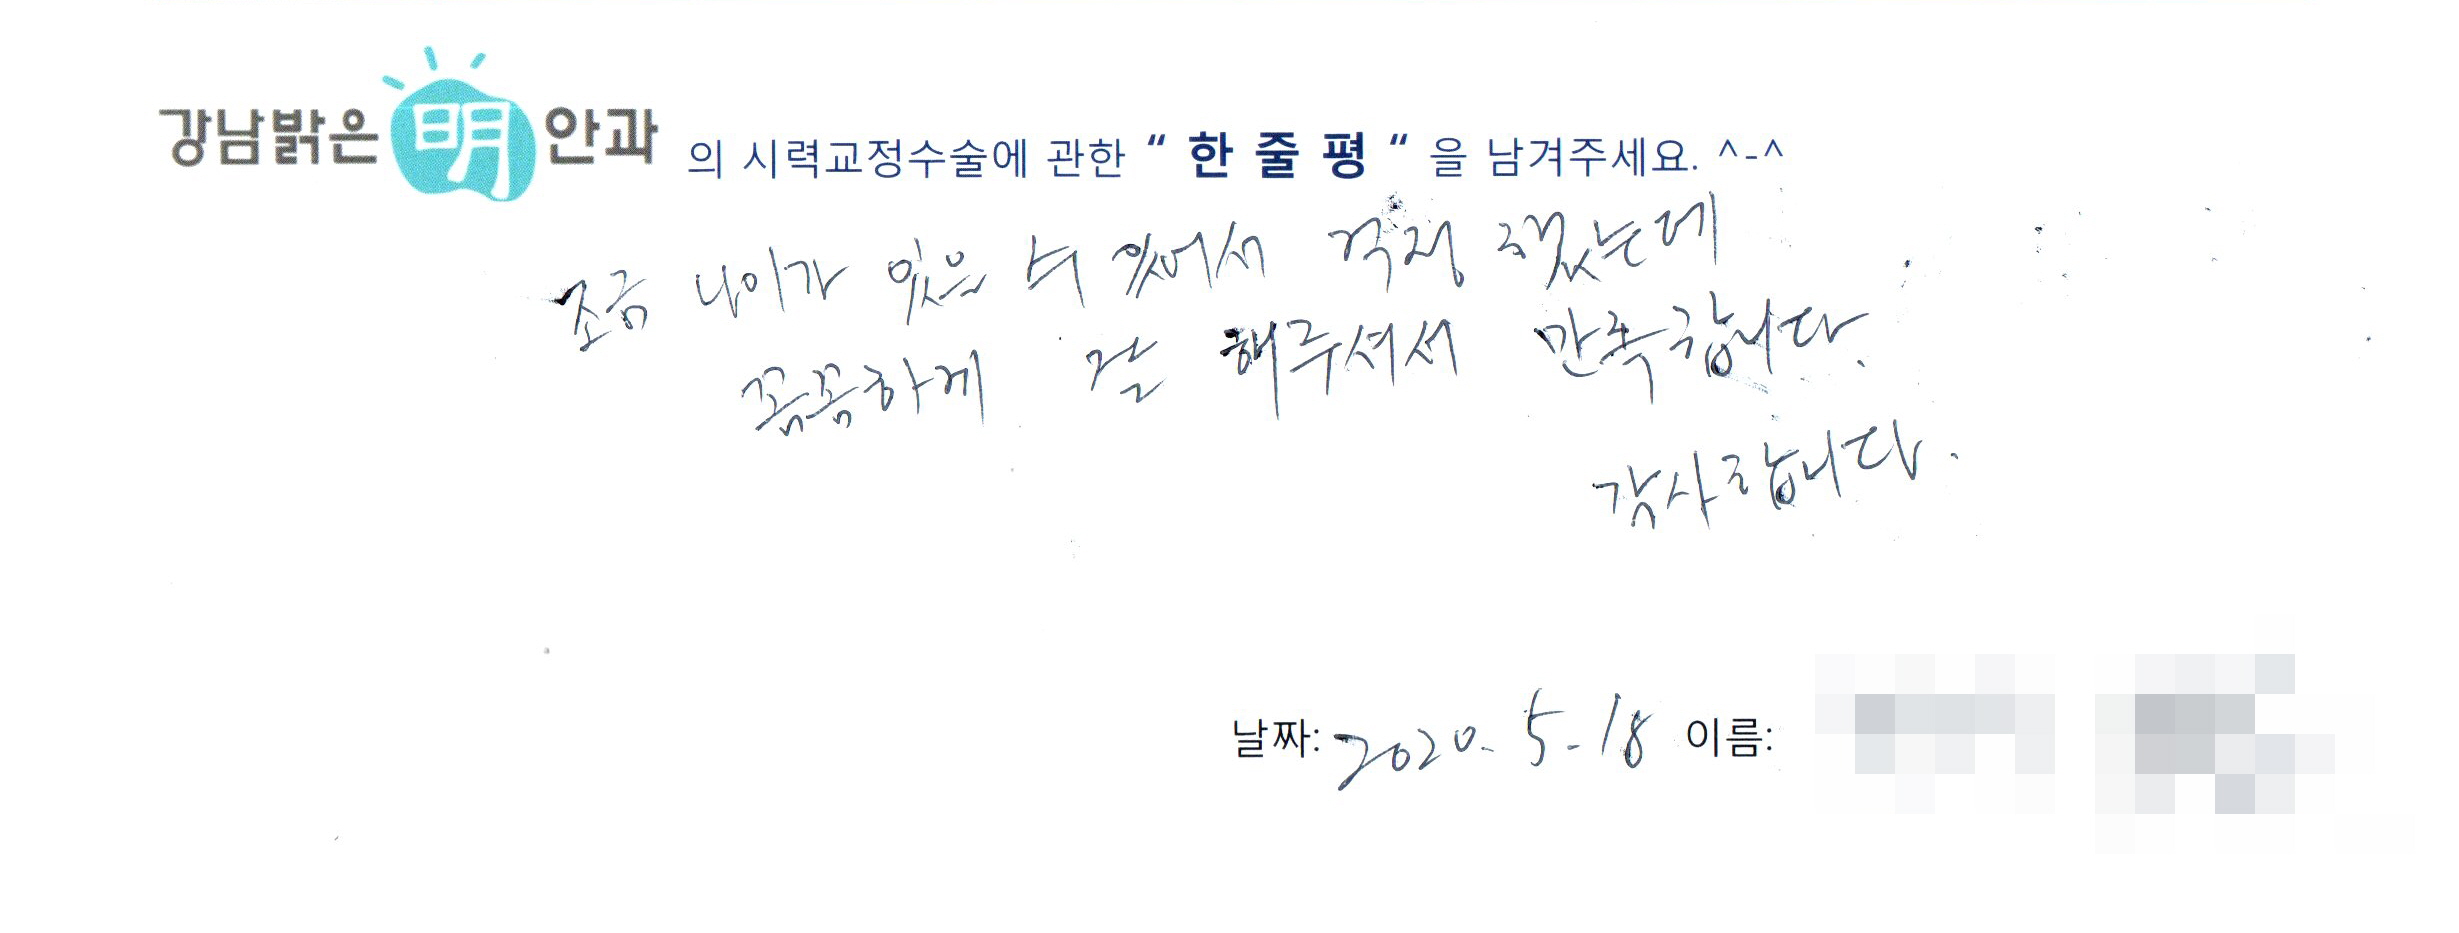 강남밝은 明 안과 의 시력교정수술에 관한 “ 한 줄 평 “ 을 남겨주세요. ^-^
조금 나이가 있을 수 있어서 걱정 했는데
꼼꼼하게 잘 해주셔서 만족합니다.
감사합니다.
날짜: 2020. 5. 18 이름: